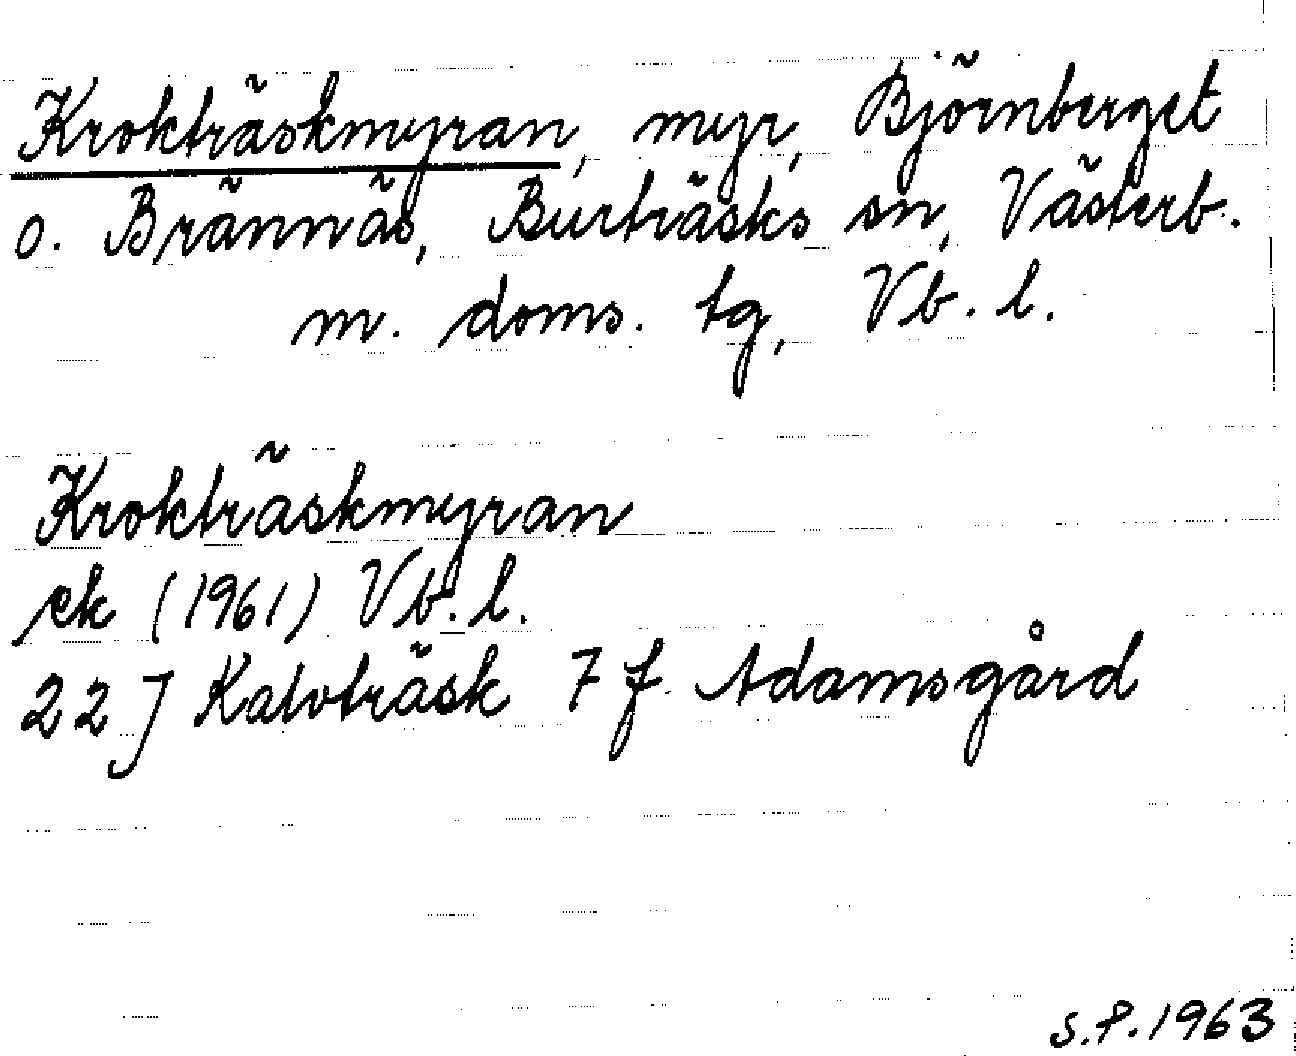 Krokträskmyran, myr, Björnberget
o. Brännäs, Burträsks sn, Västerb.
m. doms. tg, Vb. l.
Krokträskmyran
ek (1961) Vb. l.
22 J Kalvträsk 7 f Adamsgård
S.P. 1963